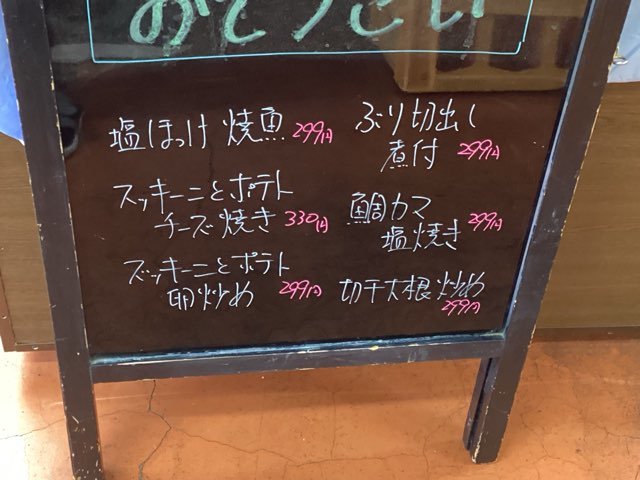 おそうざい
塩ほっけ 焼魚 299円
ズッキーニとポテト
チーズ焼き 330円
ズッキーニとポテト
卵炒め 299円
ぶり切出し
煮付 299円
鯛カマ
塩焼き 299円
切干大根炒め
299円